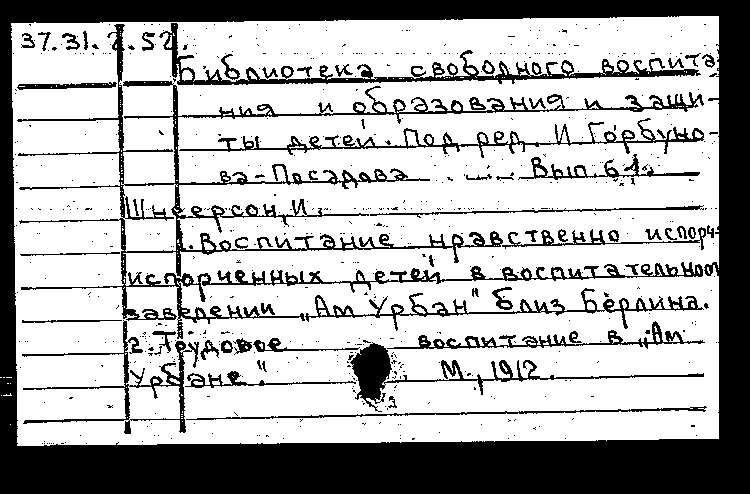 37.31.2.52.
Библиотека свободного воспита
ния и образования и защи-
ты детей. Под ред. И Горбуно-
ва-Посадова ..... Вып. 61.
Шнеерсон, И.
1. Воспитание нравственно испорч
испорченных детей в воспитательном
заведении „Ам Урбан" близ Берлина.
2. Трудовое воспитание в „Ам
Урбане". М., 1912.